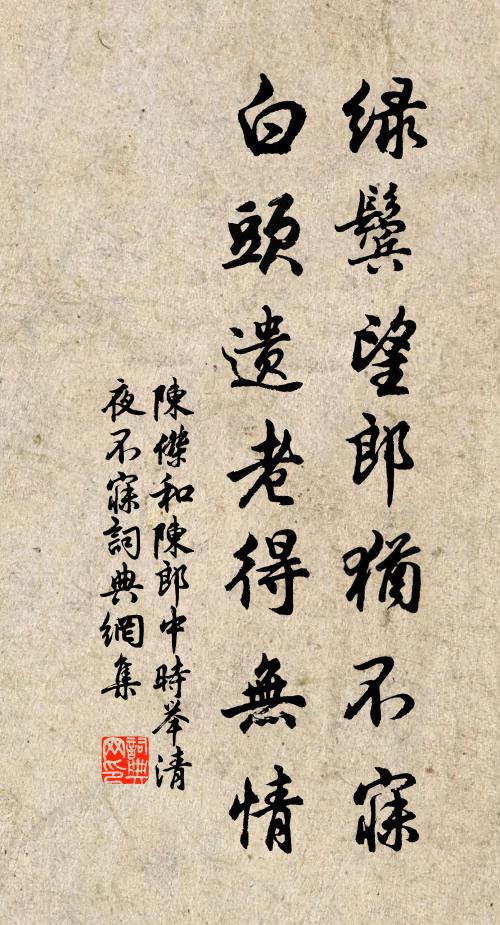 緑鬢望郎猶不寐
白頭遺老得無情
陳傑和陳郎中時举清
夜不寐詞典網集
詞典网印